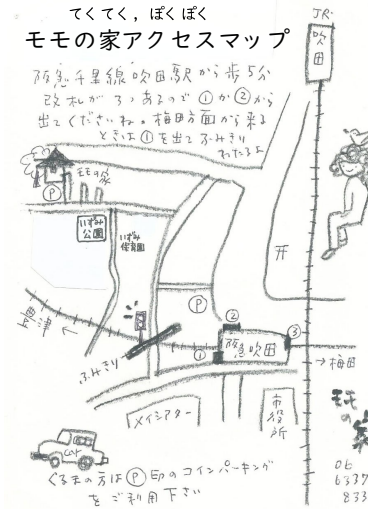 てくてく，ぽくぽく
モモの家アクセスマップ
JR
吹田
阪急千里線吹田駅から歩5分
改札が3つあるので①か②から
出てくださいね。梅田方面から来る
ときは①を出てふみきり
わたるよ
モモの家
P
いずみ
公園
いずみ
保育園
P
②
③
阪急吹田
①
→梅田
ふみきり
メイシアター
市役所
モモ
の
家
car
くるまの方はⓅ印のコインパーキング
をご利用下さい
06
6337
833